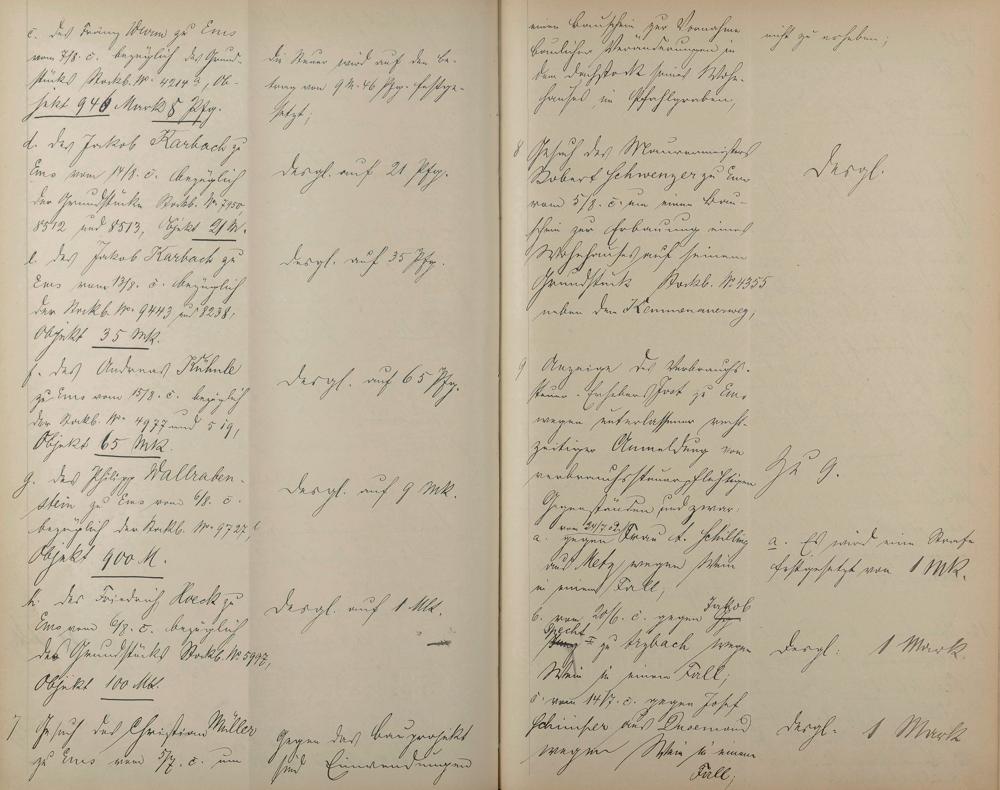 c. des Franz Wwm zu Ems
vom 7/8. c. bezüglich des Grund-
stücks Stockb. No 4214/3, Ob-
jekt 946 Mark 8 Pfg.
Die Steuer wird auf den Be-
trag von 9 M. 46 Pfg. festge-
setzt;
d. des Jakob Karbach zu
Ems vom 14/8. c. bezüglich
der Grundstücke Stockb. No 7950,
8512 und 8513, Objekt 21 M.
desgl. auf 21 Pfg.
e. des Jakob Karbach zu
Ems vom 13/8. c. bezüglich
der Stockb. No 9443 und 8238,
Objekt 35 Mk.
desgl. auf 35 Pfg.
f. des Andreas Kühnle
zu Ems vom 15/8. c. bezüglich
der Stockb. No 4977 und 519,
Objekt 65 Mk.
desgl. auf 65 Pfg.
g. des Philipp Wallraben-
stein zu Ems vom 6/8. c.
bezüglich der Stockb. No 9727,
Objekt 900 M.
desgl. auf 9 Mk.
h. des Friedrich Hoeck zu
Ems vom 6/8. c. bezüglich
des Grundstücks Stockb. No 5997,
Objekt 100 Mk.
desgl. auf 1 Mk.
7 Gesuch des Christian Müller
zu Ems vom 5/7. c. um
Gegen das Bauprojekt
sind Einwendungen
einen Bauschein zur Vornahme
baulicher Veränderungen in
dem Dachstock seines Wohn-
hauses im Pfahlgraben,
nicht zu erheben;
8 Gesuch des Maurermeisters
Robert Schwenzer zu Ems
vom 5/8. c. um einen Bau-
schein zur Erbauung eines
Wohnhauses auf seinem
Grundstück Stockb. No 4355
neben dem Kemmenauerweg,
Desgl.
9 Anzeige des Verbrauchs-
steuer-Erhebers Jost zu Ems
wegen unterlassener recht-
zeitiger Anmeldung von
verbrauchssteuerpflichtigen
Gegenständen und zwar:
Zu 9.
vom 24/7. 02
a. gegen Frau A. Schilling
aus Metz wegen Wein
in einem Fall;
a. Es wird eine Strafe
festgesetzt von 1 Mk.
b. vom 20/6. c. gegen Jakob
Specht II zu Arzbach wegen
Wein in einem Fall;
desgl. 1 Mark.
c. vom 14/7. c. gegen Josef
Schimper aus
wegen Wein in einem
Fall;
desgl. 1 Mark